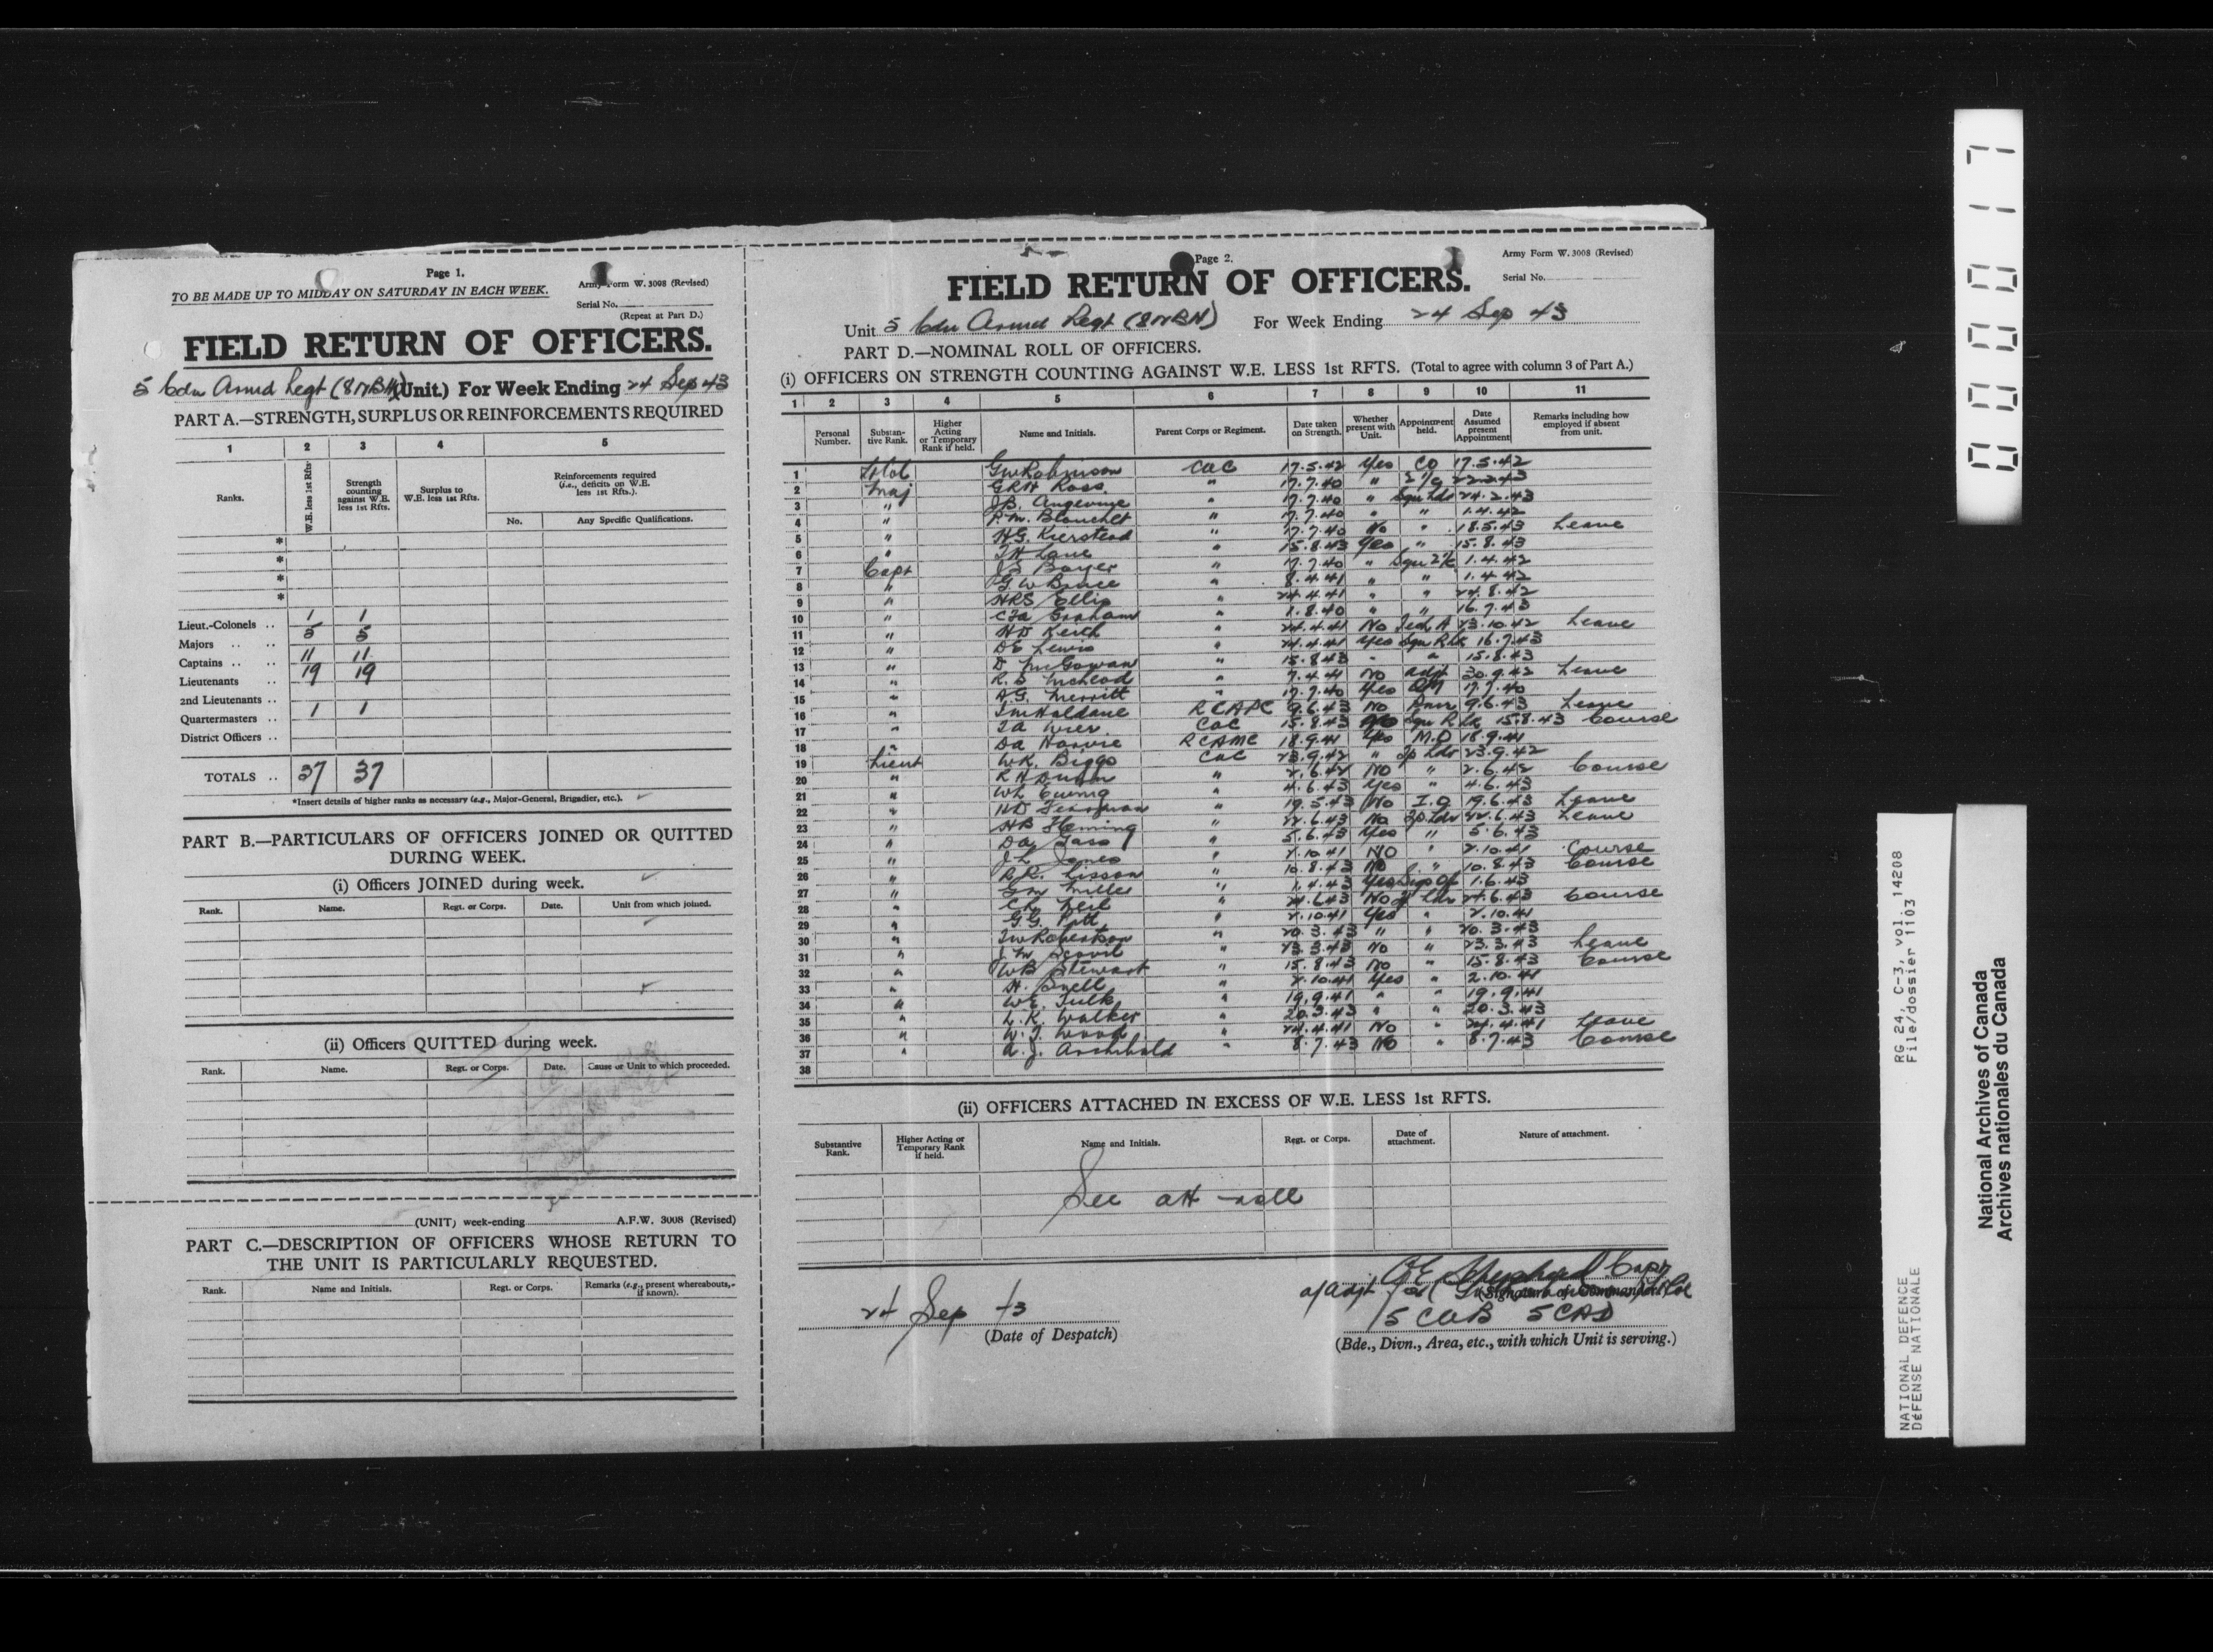 Page 1.
TO BE MADE UP TO MIDDAY ON SATURDAY IN EACH WEEK.
Army Form W. 3008 (Revised)
Serial No.
(Repeat at Part D.)
FIELD RETURN OF OFFICERS.
5 Cdn Armd Regt (8NBH) (Unit.) For Week Ending 24 Sep 43
PART A.—STRENGTH, SURPLUS OR REINFORCEMENTS REQUIRED
1 2 3 4 5
Ranks. W.E. less 1st Rfts. Strength counting against W.E. less 1st Rfts. Surplus to W.E. less 1st Rfts. Reinforcements required (i.e., deficits on W.E. less 1st Rfts.).
No. Any Specific Qualifications.
*
*
*
*
Lieut.-Colonels .. 1 1
Majors .. .. 5 5
Captains .. .. 11 11
Lieutenants .. 19 19
2nd Lieutenants ..
Quartermasters .. 1 1
District Officers ..
TOTALS .. 37 37
*Insert details of higher ranks as necessary (e.g., Major-General, Brigadier, etc.).
PART B.—PARTICULARS OF OFFICERS JOINED OR QUITTED
DURING WEEK.
(i) Officers JOINED during week.
Rank. Name. Regt. or Corps. Date. Unit from which joined.
(ii) Officers QUITTED during week.
Rank. Name. Regt. or Corps. Date. Cause or Unit to which proceeded.
(UNIT) week-ending A.F.W. 3008 (Revised)
PART C.—DESCRIPTION OF OFFICERS WHOSE RETURN TO
THE UNIT IS PARTICULARLY REQUESTED.
Rank. Name and Initials. Regt. or Corps. Remarks (e.g., present whereabouts, if known).
Page 2.
Army Form W. 3008 (Revised)
Serial No.
FIELD RETURN OF OFFICERS.
Unit 5 Cdn Armd Regt (8NBH) For Week Ending 24 Sep 43
PART D.—NOMINAL ROLL OF OFFICERS.
(i) OFFICERS ON STRENGTH COUNTING AGAINST W.E. LESS 1st RFTS. (Total to agree with column 3 of Part A.)
1 2 3 4 5 6 7 8 9 10 11
Personal Number. Substantive Rank. Higher Acting or Temporary Rank if held. Name and Initials. Parent Corps or Regiment. Date taken on Strength. Whether present with Unit. Appointment held. Date Assumed present Appointment Remarks including how employed if absent from unit.
1 Lt Col GW Robinson CAC 17.5.42 Yes CO 17.5.42
2 Maj GRH Ross " 17.7.40 " 2 i/c
3 " JB. Angevine " 17.7.40 " Sqn Ldr 24.2.43
4 " P.M. Blanchet " 17.7.40 " " 1.4.42
5 " HG. Kierstead " 17.7.40 No " 18.5.43 Leave
6 " Lane " 15.8.43 Yes " 15.8.43
7 Capt JS Boyer " 17.7.40 " Sqn 2i/c 1.4.42
8 " GW Bruce " 8.4.41 " " 1.4.42
9 " HRS Ellis " 24.4.41 " " 24.8.42
10 " Graham " 1.8.40 " " 16.7.43
11 " HD Keith " 24.4.41 No Tech A 23.10.42 Leave
12 " DE Lewis " 24.4.41 Yes Sqn 16.7.43
13 " D McGowan " 15.8.43 " " 15.8.43
14 " R.S McLeod " 7.4.41 No Adjt 30.9.42 Leave
15 " A.G. Merritt " 17.7.40 Yes QM 17.7.40
16 " Haldane RCAPC 9.6.43 No Pmr 9.6.43 Leave
17 " CAC 15.8.43 Sqn 15.8.43 Course
18 " DA RCAMC 18.9.41 Yes M.O 18.9.41
19 Lieut WK. Biggs CAC 23.9.42 " Tp Ldr 23.9.42
20 " RH Dunn " 2.6.42 No " 2.6.42 Course
21 " WL Ewing " 4.6.43 Yes " 4.6.43
22 " " 19.5.43 No I.O 19.6.43 Leave
23 " HB Fleming " 22.6.43 No Tp Ldr 22.6.43 Leave
24 " " 5.6.43 Yes " 5.6.43
25 " J.L. Jones " 2.10.41 NO " 2.10.41 Course
26 " Lisson " 10.8.43 No " 10.8.43 Course
27 " GM Miller " 1.4.43 Yes Sigs Of 1.6.43
28 " Neil " 24.6.43 No Tp Ldr 24.6.43 Course
29 " G.G. Pitt " 2.10.41 Yes " 2.10.41
30 " Robertson " 20.3.43 " " 20.3.43
31 " Scovil " 23.3.43 No " 23.3.43 Leave
32 " WB Stewart " 15.8.43 No " 15.8.43 Course
33 " H. Snell " 2.10.41 Yes " 2.10.41
34 " WE. Tulk " 19.9.41 " " 19.9.41
35 " L.K. Walker " 20.3.43 " " 20.3.43
36 " W.T. Wood " 24.4.41 No " 24.4.41 Leave
37 " A.J. Archibald " 8.7.43 No " 8.7.43 Course
38
(ii) OFFICERS ATTACHED IN EXCESS OF W.E. LESS 1st RFTS.
Substantive Rank. Higher Acting or Temporary Rank if held. Name and Initials. Regt. or Corps. Date of attachment. Nature of attachment.
See att roll
24 Sep 43
(Date of Despatch)
Capt
a/Adjt for
(Signature of Commander.)
5 CAB 5 CAD
(Bde., Divn., Area, etc., with which Unit is serving.)
0000017
RG 24, C-3, vol. 14208
File/dossier 1103
NATIONAL DEFENCE
DÉFENSE NATIONALE
National Archives of Canada
Archives nationales du Canada